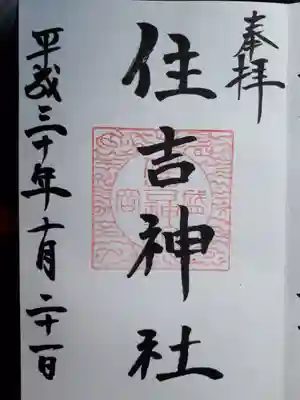 奉拝
住吉神社
平成三十年十月二十一日